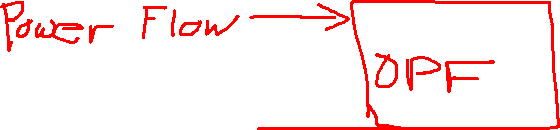 Power Flow
OPF